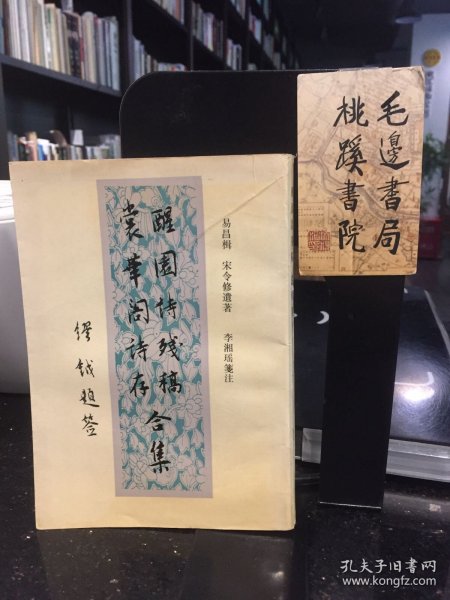 易昌楫 宋令修遗著 李湘瑶笺注
醒園诗残稿
裳華阁诗存
合集
缪钺題签
毛邊書局
桃蹊書院
孔夫子旧书网
www.kongfz.com